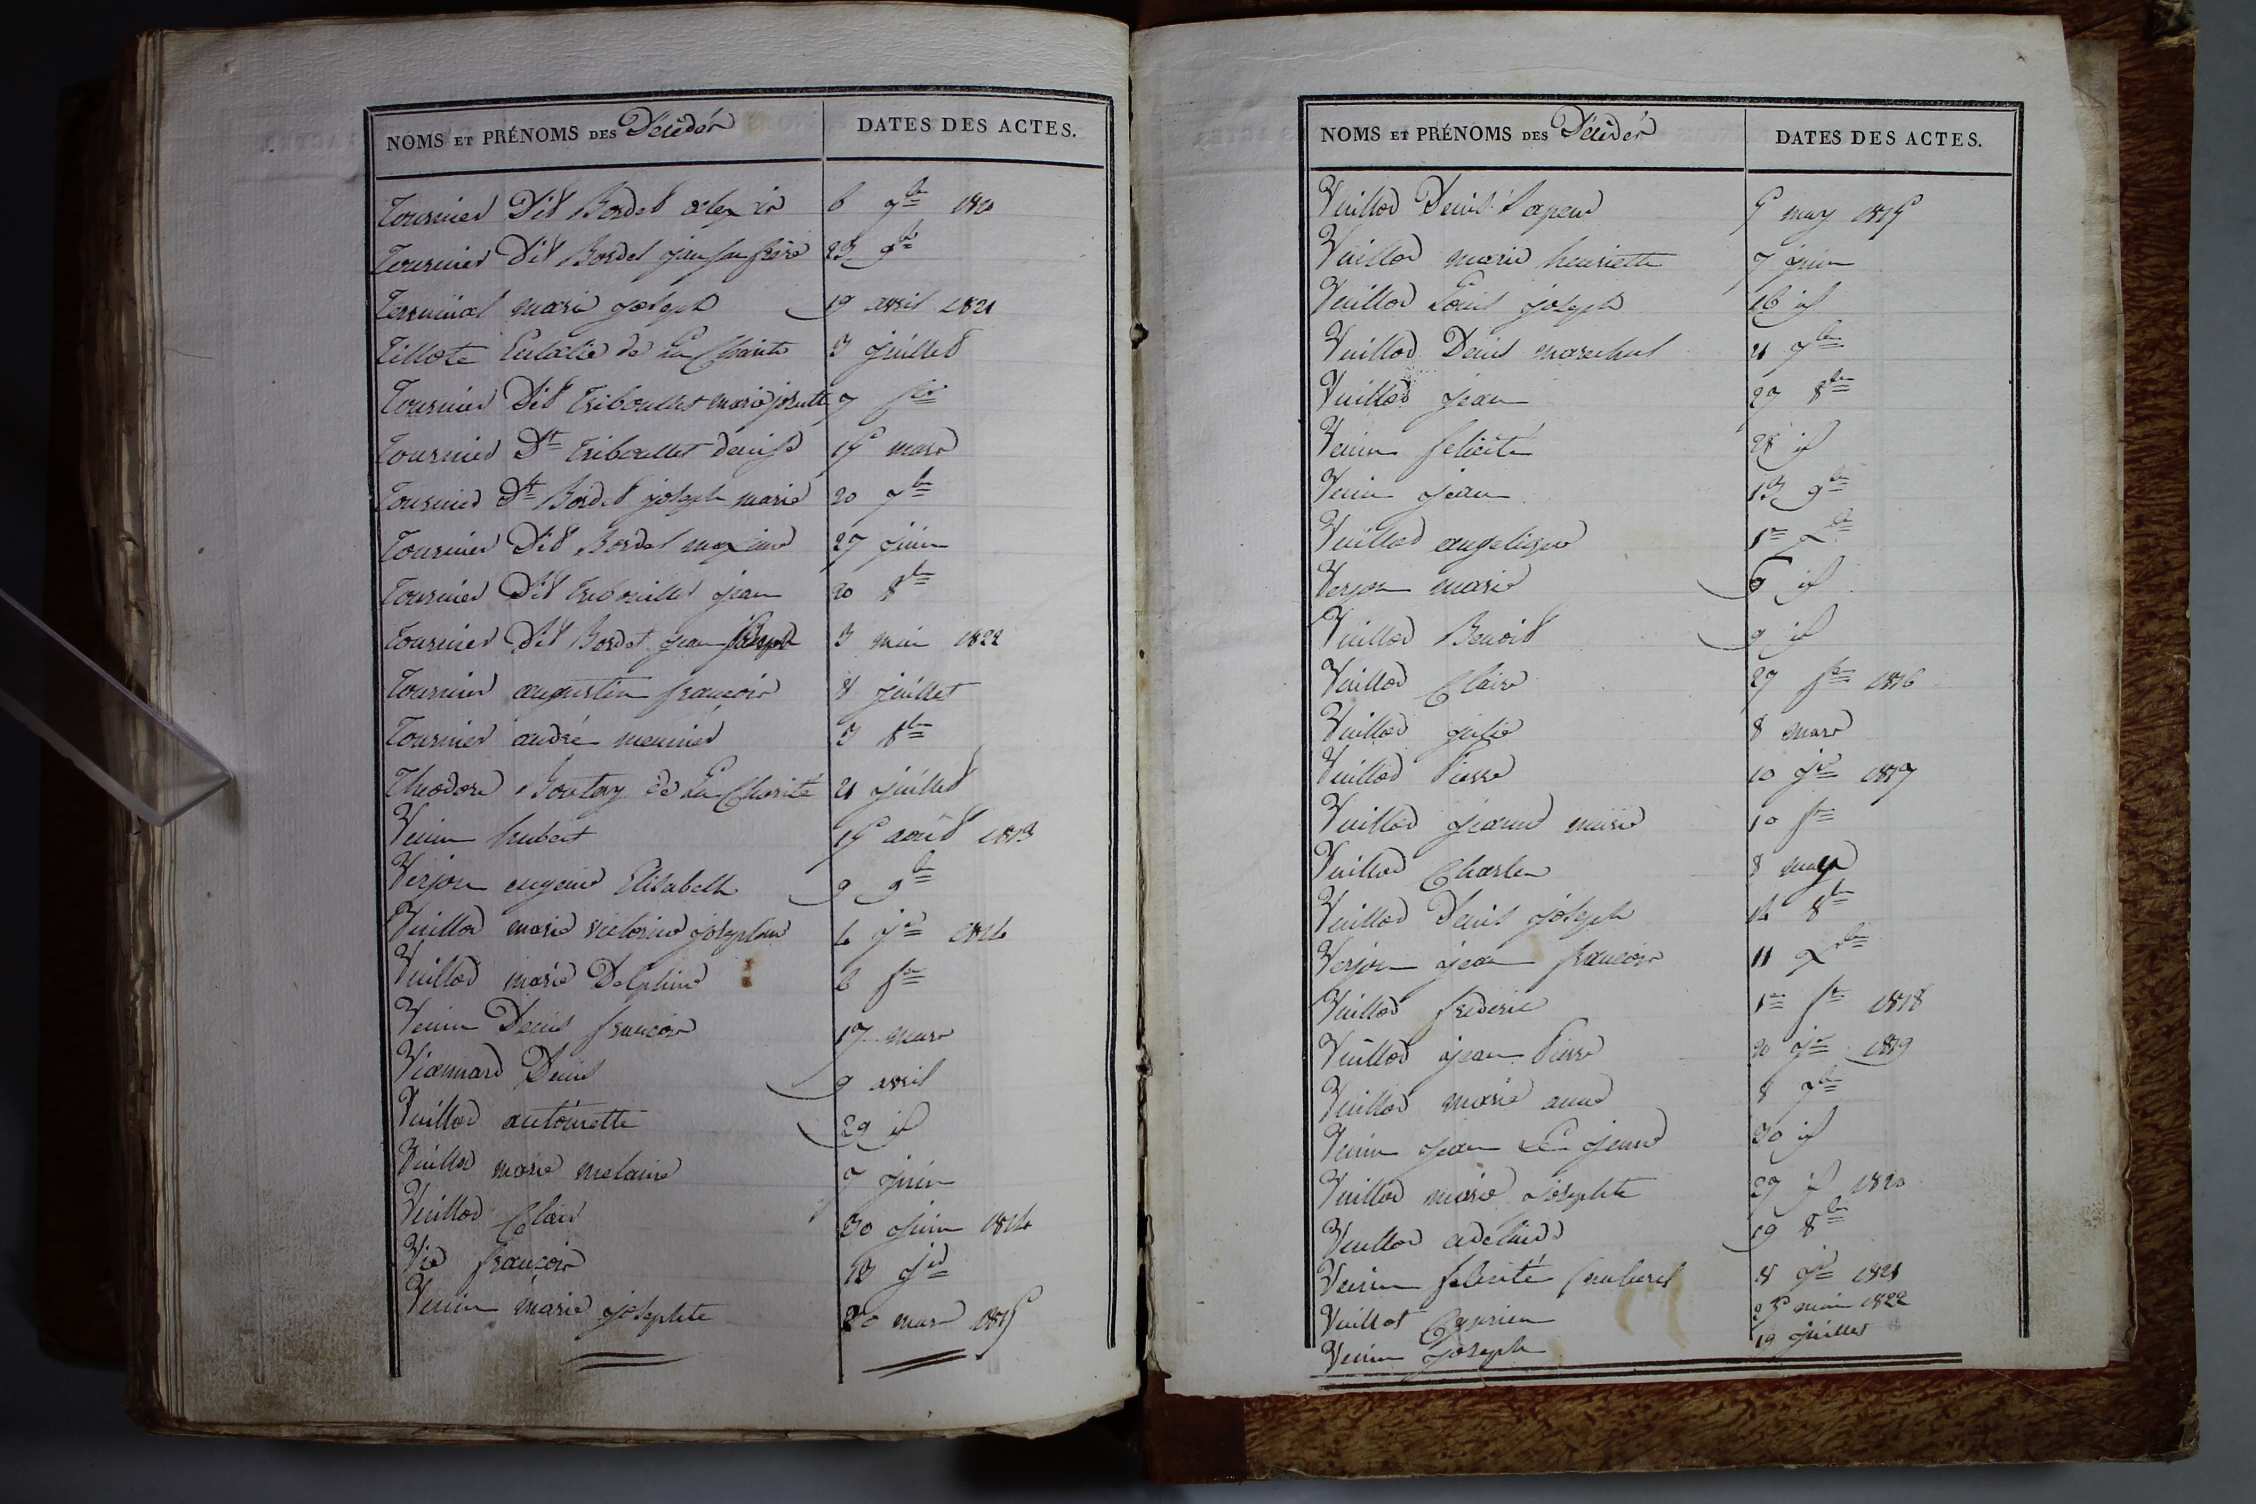 NOMS ET PRÉNOMS DES Décédés DATES DES ACTES.
Tournier Dit Bordet alexis 6 9bre 1820
Tournier Dit Bordet jean son frère 23 9bre
Terminal marie joseph 19 avril 1821
Tillote Eulalie de La Charité 3 juillet
Tournier Dit Triboulles marie josette 7 fer
Tournier Dt Triboullet denise 15 mars
Tournier Dt Bordet joseph marie 20 7bre
Tournier Dit Bordet maxime 27 juin
Tournier Dit Tribouillet jean 20 8bre
Tournier Dit Bordet jean joseph 3 mai 1822
Tournier augustin françois 8 juillet
Tournier andré meunier 3 8bre
Théodore de La Charité 21 juillet
Venin hubert 15 août 1813
Verjon eugenie Elisabeth 9 9bre
Vuillod marie victorine josephine 4 jer 1814
Vuillod marie Delphine 6 fer
Venin Denis françois 17 mars
Viannard Denis 9 avril
Vuillod antoinette 29 id
Vuillod marie melanie 7 juin
Vuillod Clair 30 juin 1814
Vie françois 13 jet
Venin marie josephte 20 mars 1815
NOMS ET PRÉNOMS DES Décédés DATES DES ACTES.
Vuillod Denis 5 may 1815
Vuillod marie henriette 7 juin
Vuillod Louis joseph 16 id
Vuillod Denis marechal 21 7bre
Vuillod jean 27 8bre
Venin felicité 28 id
Venin jean 13 9bre
Vuillod angelique 1er Xbre
Verjon marie 6 id
Vuillod Benoit 9 id
Vuillod Claire 27 fer 1816
Vuillod julie 8 mars
Vuillod Pierre 10 jer 1817
Vuillod jeanne marie 10 fer
Vuillod Charles 8 may
Vuillod Denis joseph 14 8bre
Verjon jean françois 11 Xbre
Vuillod frederic 1er fer 1818
Vuillod jean Pierre 20 jer 1819
Vuillod marie anne 8 7bre
Venin jean Le jeune 30 id
Vuillod marie josephte 27 jet 1820
Vuillod adélaide 19 8bre
Venin felicité 8 jer 1821
Vuillot Cyprien 25 mai 1822
Venin joseph 19 juillet